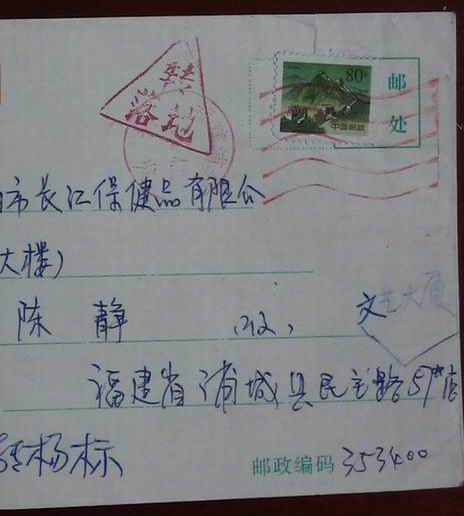 80分
中国邮政
邮
处
落地
市长江保健品有限公
大楼)
陈 静 收
文
大厦
福建省浦城县民主路57#店
转杨标
邮政编码 353400